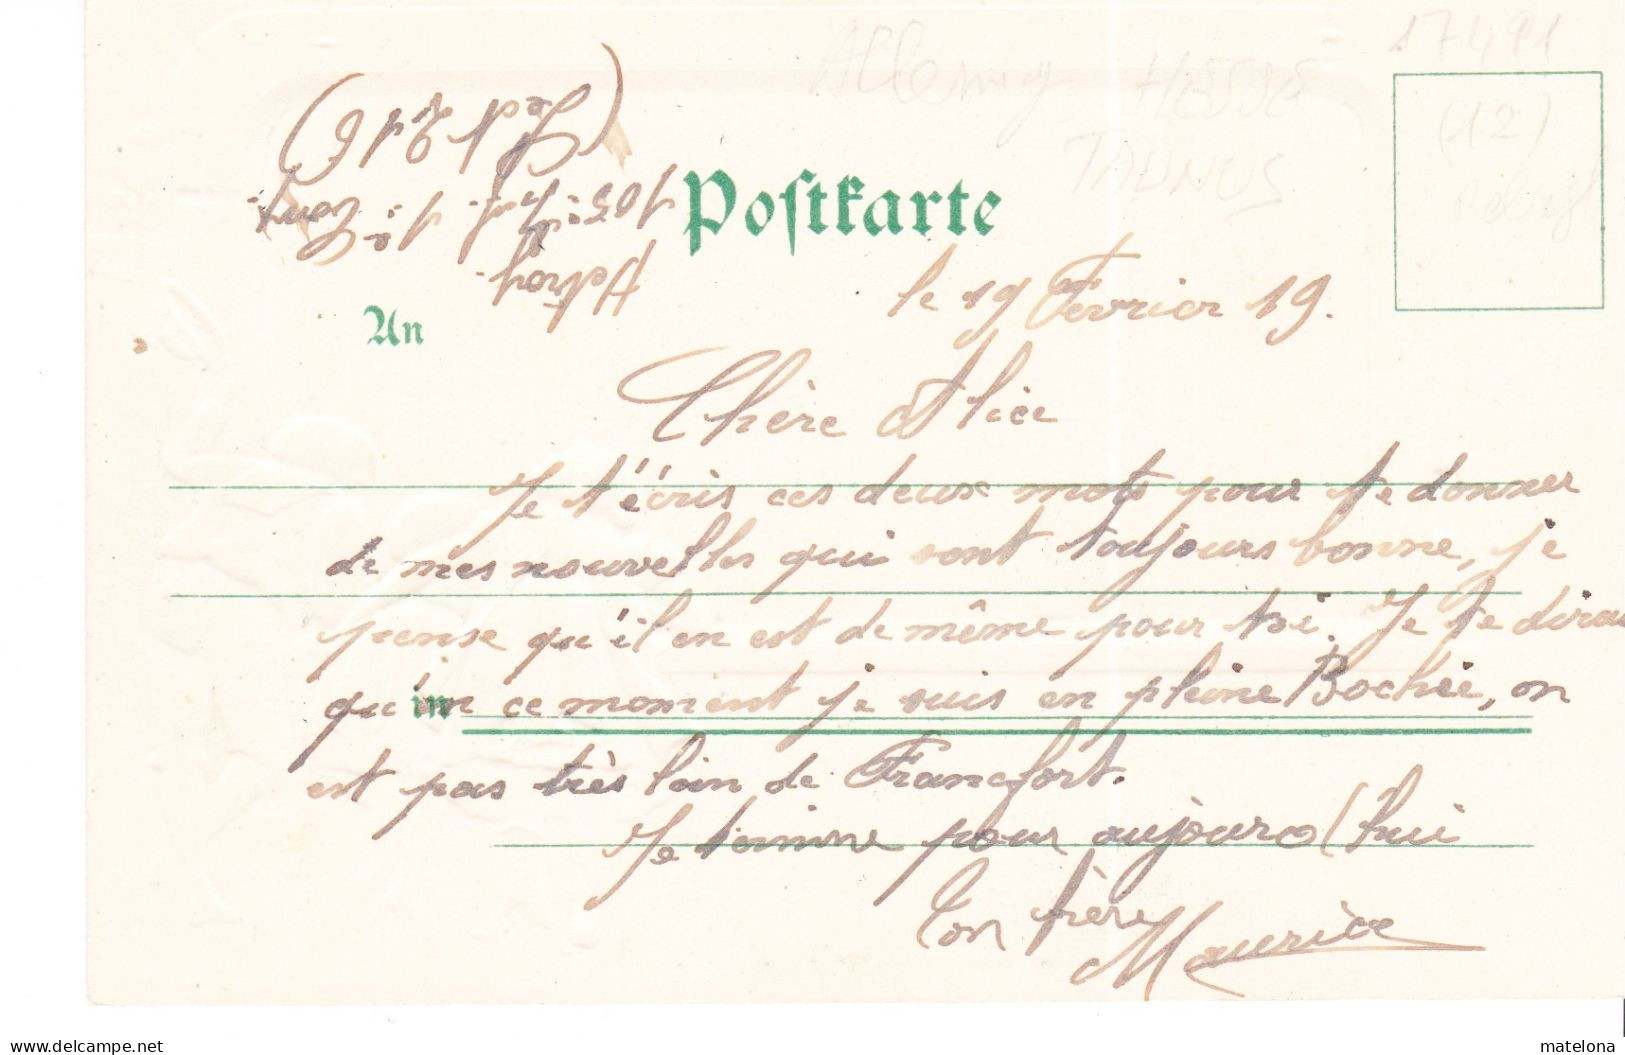 17491
Allemag HESSE
(12)
TAUNUS
Postkarte
An
le 19 Fevrier 19.
Chère Alice
Je t'écris ces deux mots pour te donner
de mes nouvelles qui sont toujours bonne, je
pense qu'il en est de même pour toi. Je te dirai
qu'en ce moment je suis en pleine Bochie, on
in
est pas très loin de Francfort.
Je termine pour aujourd'hui
Ton frère
Maurice
www.delcampe.net
matelona